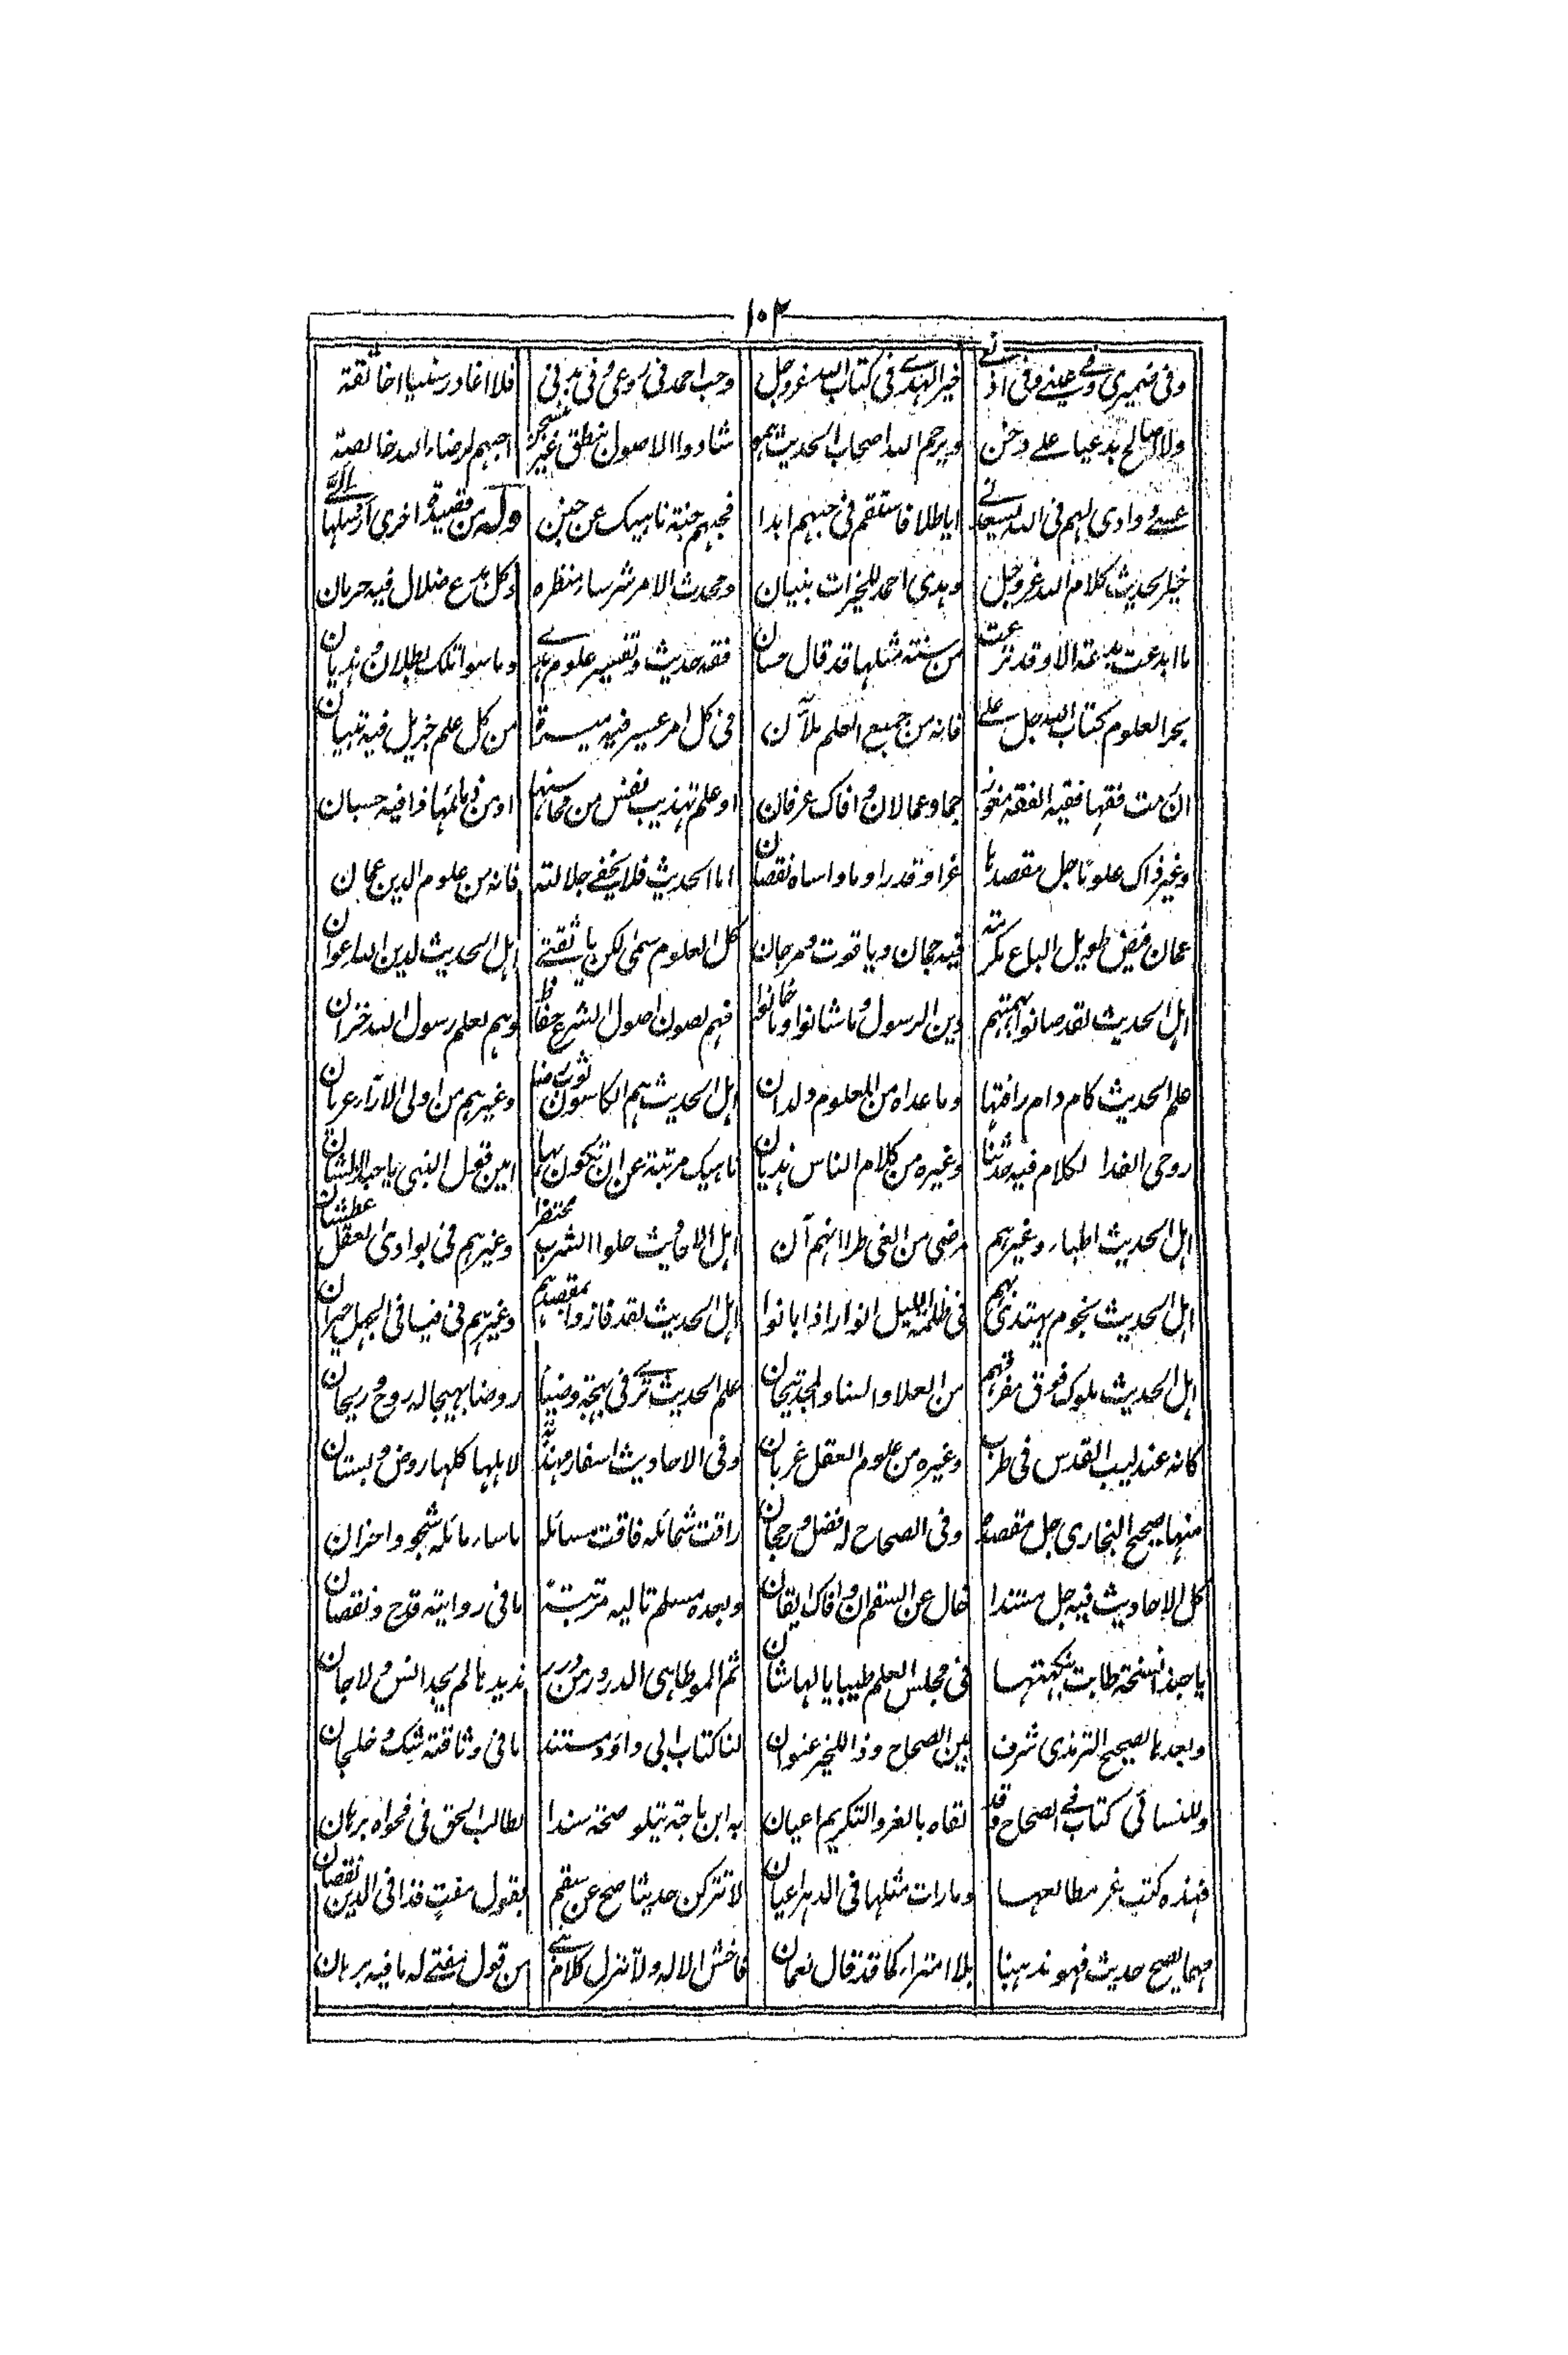 ١٠٢
وفي ضميري وفي عيني وفي اذني خير الهدى في كتاب الله عز وجل وحب احمد في روعي وفي بدني فلا اغادر سنيا اخا ثقة
ولا اصالح بدعيا على دخن ويرحم الله اصحاب الحديث هم شادوا الاصول بنطق غير احبهم لرضاء الله خالصة
عسى ودادي لهم في الله يسعدني اباطلا فاستقم في حبهم ابدا فحبهم جنة ناهيك عن جنن وله من قصيدة اخرى ارسلها الي
خير الحديث كلام الله عز وجل وهدى احمد للخيرات بنيان ومحدث الامر شر ساء منظره وكل بدع ضلال فيه حرمان
ما ابدعت بدعة الا وقد نزعت من سنة مثلها قد قال حسان فقه حديث وتفسير علوم هدى وما سوا تلك بطلان وهذيان
بحر العلوم كتاب الله جل على فانه من جميع العلم ملآن في كل امر عسير فيه ميسرة من كل علم جزيل فيه تبيان
ان مت فقها فقيه الفقه مغزر جما وعما لان وافاك عرفان او علم تهذيب نفس من محاسنها او من فما فيه حسبان
وغير ذاك علوما جل مقصدها عزا وقدرا وما واساه نقصان اما الحديث فلا يخفى جلالته فانه من علوم الدين عمان
عمان فيض طويل الباع مكرمة فيه جمان وياقوت ومرجان كل العلوم سمى لكن يا ثقتي اهل الحديث لدين الله اعوان
اهل الحديث لقد صانوا بهمتهم دين الرسول وما شانوا وما خانوا فهم لصون اصول الشرع حفاظ وهم لعلم رسول الله خزان
علم الحديث كام دام رافتها وما عداه من المعلوم ولدان اهل الحديث هم الكاسون ثوب وغيرهم من اولى الآراء عريان
روحي الفدا لكلام فيه حدثنا وغيره من كلام الناس هذيان ناهيك مرتبة عن ان تكون بها امين قول النبي يا حبذا الشان
اهل الحديث اطباء وغيرهم مرضى من الغي طرا انهم آن اهل الاحاديث حلوا الشرب محتضرا وغيرهم في بوادي العقل عطشان
اهل الحديث نجوم يهتدى بهم في ظلمة الليل انوار اذا بانوا اهل الحديث لقد فازوا بمقصدهم وغيرهم في فيافي الجهل حيران
اهل الحديث ملوك فوق مفرقهم من العلا والسنا والمجد تيجان علم الحديث ترى في بهجة وضيا روضا بهيجا له روح وريحان
كانه عندليب القدس في طرب وغيره من علوم العقل غربان وفي الاحاديث اسفار مهذبة لاهلها كلها روض وبستان
منها صحيح البخاري جل مقصده وفي الصحاح له فضل ورجحان راقت شمائله فاقت مسائله ما ساء مائله شجو واحزان
كل الاحاديث فيه جل مستندا خال عن السقم ان وافاك ايقان وبعده مسلم تاليه مرتبة ما في روايته قدح ونقصان
يا حبذا نسخة طابت بنكهتها في مجلس العلم طيبا يالها شان ثم الموطا هي الدرور من درر نديدها لم يجد انس ولا جان
وبعدها لصحيح الترمذي شرف بين الصحاح وذا للخير عنوان لنا كتاب ابي داؤد مستند ما في وثاقته شك وخلجان
وللنسائي كتاب في الصحاح وقد لقاه بالعز والتكريم اعيان به ابن ماجة يتلو صحة سندا لطالب الحق في فحواه برهان
فهذه كتب عز مطالعها وما رات مثلها في الدهر اعيان لا تتركن حديثا صح عن سقم بقول مفت فذا في الدين نقصان
مهما يصح حديث فهو مذهبنا بلا امتراء كما قد قال نعمان فاخش الاله ولا تترك كلام نبي من قول مفتي له ما فيه برهان